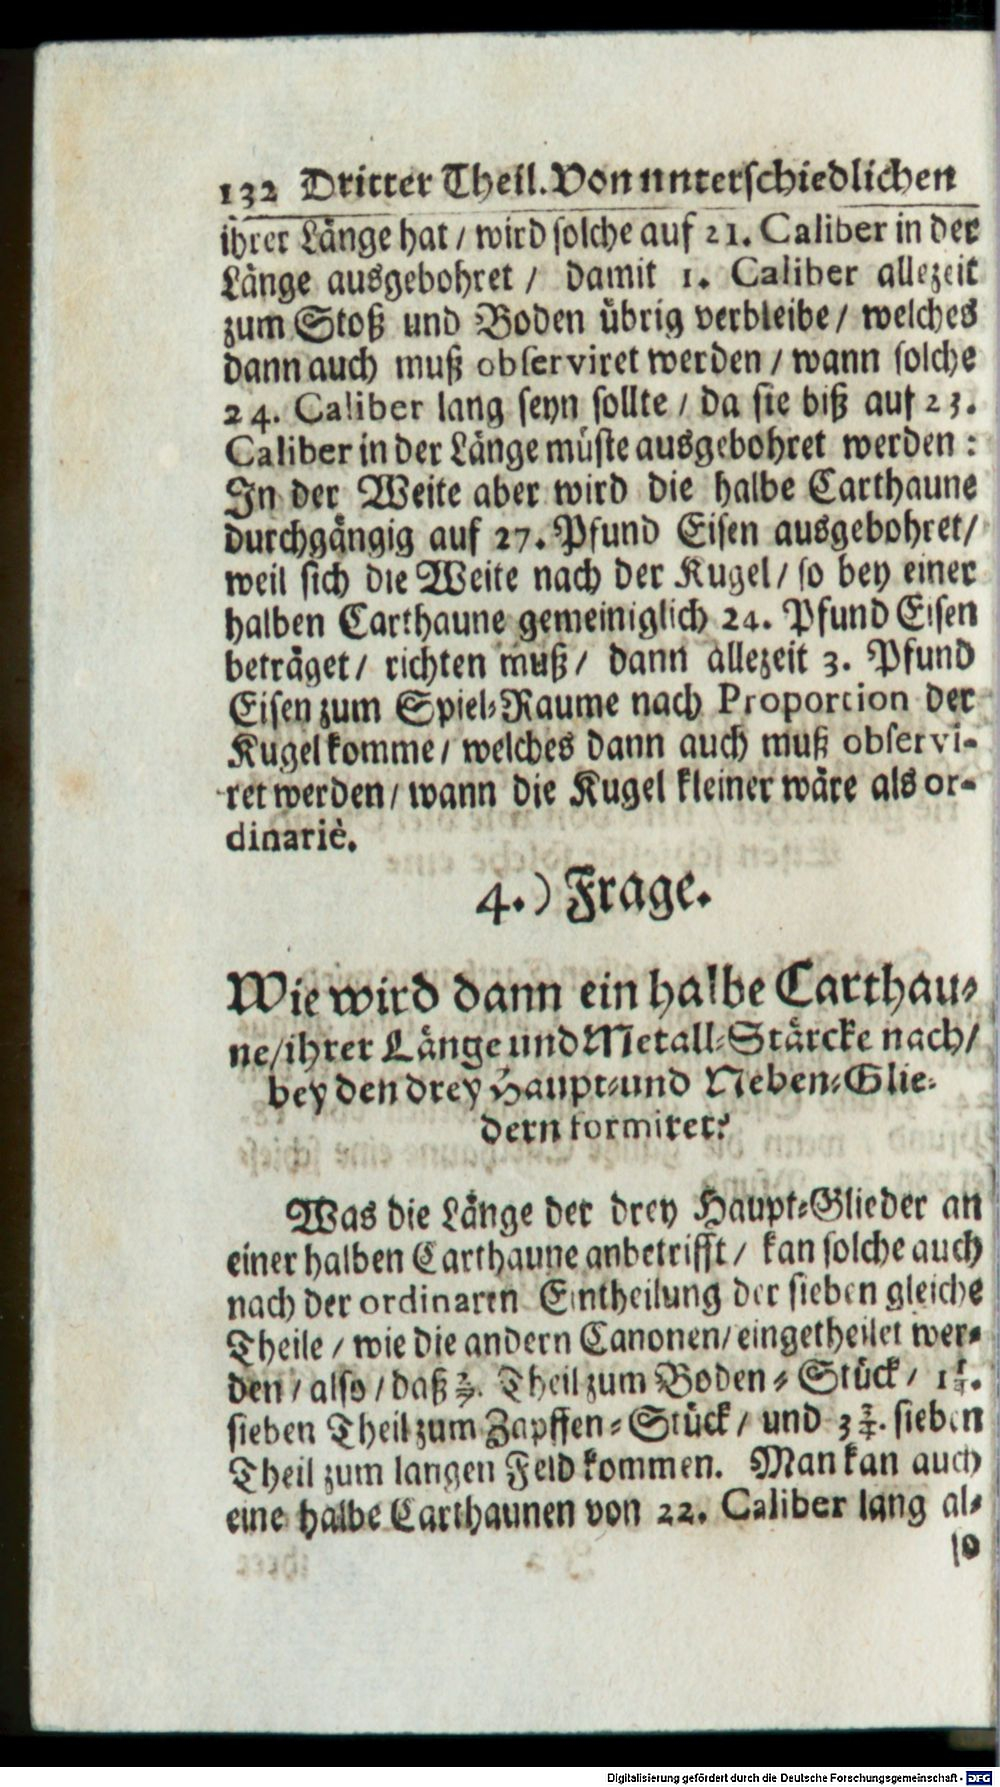 132 Dritter Theil. Von unterschiedlichen
ihrer Länge hat / wird solche auf 21. Caliber in der
Länge ausgebohret / damit 1. Caliber allezeit
zum Stoß und Boden übrig verbleibe / welches
dann auch muß observiret werden / wann solche
24. Caliber lang seyn sollte / da sie biß auf 23.
Caliber in der Länge müste ausgebohret werden :
In der Weite aber wird die halbe Carthaune
durchgängig auf 27. Pfund Eisen ausgebohret/
weil sich die Weite nach der Kugel / so bey einer
halben Carthaune gemeiniglich 24. Pfund Eisen
beträget / richten muß / dann allezeit 3. Pfund
Eisen zum Spiel-Raume nach Proportion der
Kugel komme / welches dann auch muß observi-
ret werden / wann die Kugel kleiner wäre als or-
dinariè.
4.) Frage.
Wie wird dann ein halbe Carthau-
ne/ihrer Länge und Metall-Stärcke nach/
bey den drey Haupt-und Neben-Glie-
dern formiret?
Was die Länge der drey Haupt-Glieder an
einer halben Carthaune anbetrifft / kan solche auch
nach der ordinaren Eintheilung der sieben gleiche
Theile / wie die andern Canonen/ eingetheilet wer-
den / also / daß 2/7. Theil zum Boden-Stück / 1 1/4.
sieben Theil zum Zapffen-Stück / und 3 3/4. sieben
Theil zum langen Feld kommen. Man kan auch
eine halbe Carthaunen von 22. Caliber lang al-
so
Digitalisierung gefördert durch die Deutsche Forschungsgemeinschaft - DFG